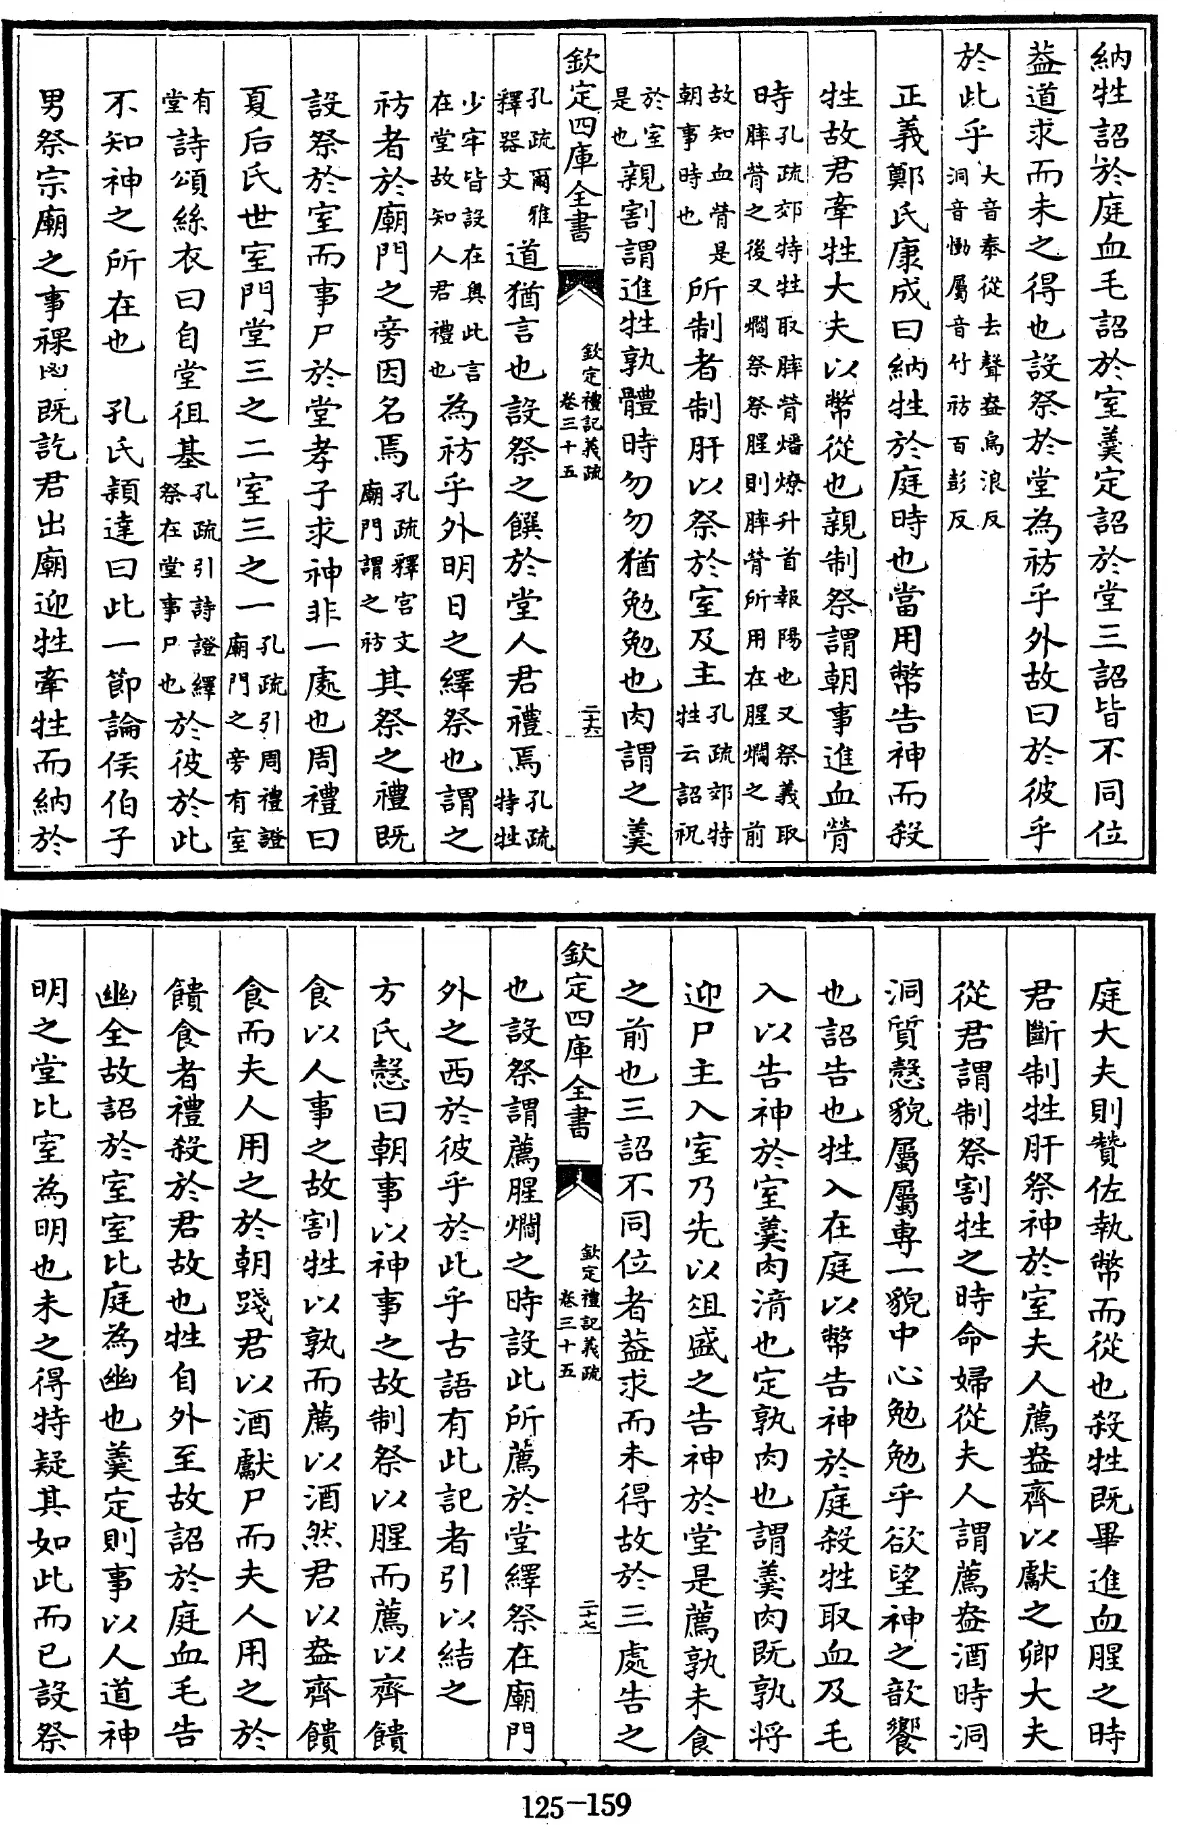 納牲詔於庭血毛詔於室羮定詔於堂三詔皆不同位
葢道求而未之得也設祭於堂為祊乎外故曰於彼乎
於此乎大音泰從去聲盎烏浪反洞音慟屬音竹祊百彭反
正義鄭氏康成曰納牲於庭時也當用幣告神而殺
牲故君牽牲大夫以幣從也親制祭謂朝事進血膋
時孔疏郊特牲取膟膋燔燎升首報陽也又祭義取膟膋之後又爓祭祭腥則膟膋所用在腥爓之前
故知血膋是朝事時也所制者制肝以祭於室及主孔疏郊特牲云詔祝
於室是也親割謂進牲孰體時勿勿猶勉勉也肉謂之羮
欽定四庫全書 欽定禮記義疏 卷三十五 二十六
孔疏爾雅釋器文道猶言也設祭之饌於堂人君禮焉孔疏特牲
少牢皆設在奥此言在堂故知人君禮也為祊乎外明日之繹祭也謂之
祊者於廟門之旁因名焉孔疏釋宫文廟門謂之祊其祭之禮既
設祭於室而事尸於堂孝子求神非一處也周禮曰
夏后氏世室門堂三之二室三之一孔疏引周禮證廟門之旁有室
有堂詩頌絲衣曰自堂徂基孔疏引詩證繹祭在堂事尸也於彼於此
不知神之所在也 孔氏穎達曰此一節論侯伯子
男祭宗廟之事祼鬯既訖君出廟迎牲牽牲而納於
庭大夫則贊佐執幣而從也殺牲既畢進血腥之時
君斷制牲肝祭神於室夫人薦盎齊以獻之卿大夫
從君謂制祭割牲之時命婦從夫人謂薦盎酒時洞
洞質慤貌屬屬專一貌中心勉勉乎欲望神之歆饗
也詔告也牲入在庭以幣告神於庭殺牲取血及毛
入以告神於室羮肉湇也定孰肉也謂羮肉既孰將
迎尸主入室乃先以俎盛之告神於堂是薦孰未食
之前也三詔不同位者葢求而未得故於三處告之
欽定四庫全書 欽定禮記義疏 卷三十五 二十七
也設祭謂薦腥爓之時設此所薦於堂繹祭在廟門
外之西於彼乎於此乎古語有此記者引以結之
方氏慤曰朝事以神事之故制祭以腥而薦以齊饋
食以人事之故割牲以孰而薦以酒然君以盎齊饋
食而夫人用之於朝踐君以酒獻尸而夫人用之於
饋食者禮殺於君故也牲自外至故詔於庭血毛告
幽全故詔於室室比庭為幽也羮定則事以人道神
明之堂比室為明也未之得特疑其如此而已設祭
125-159